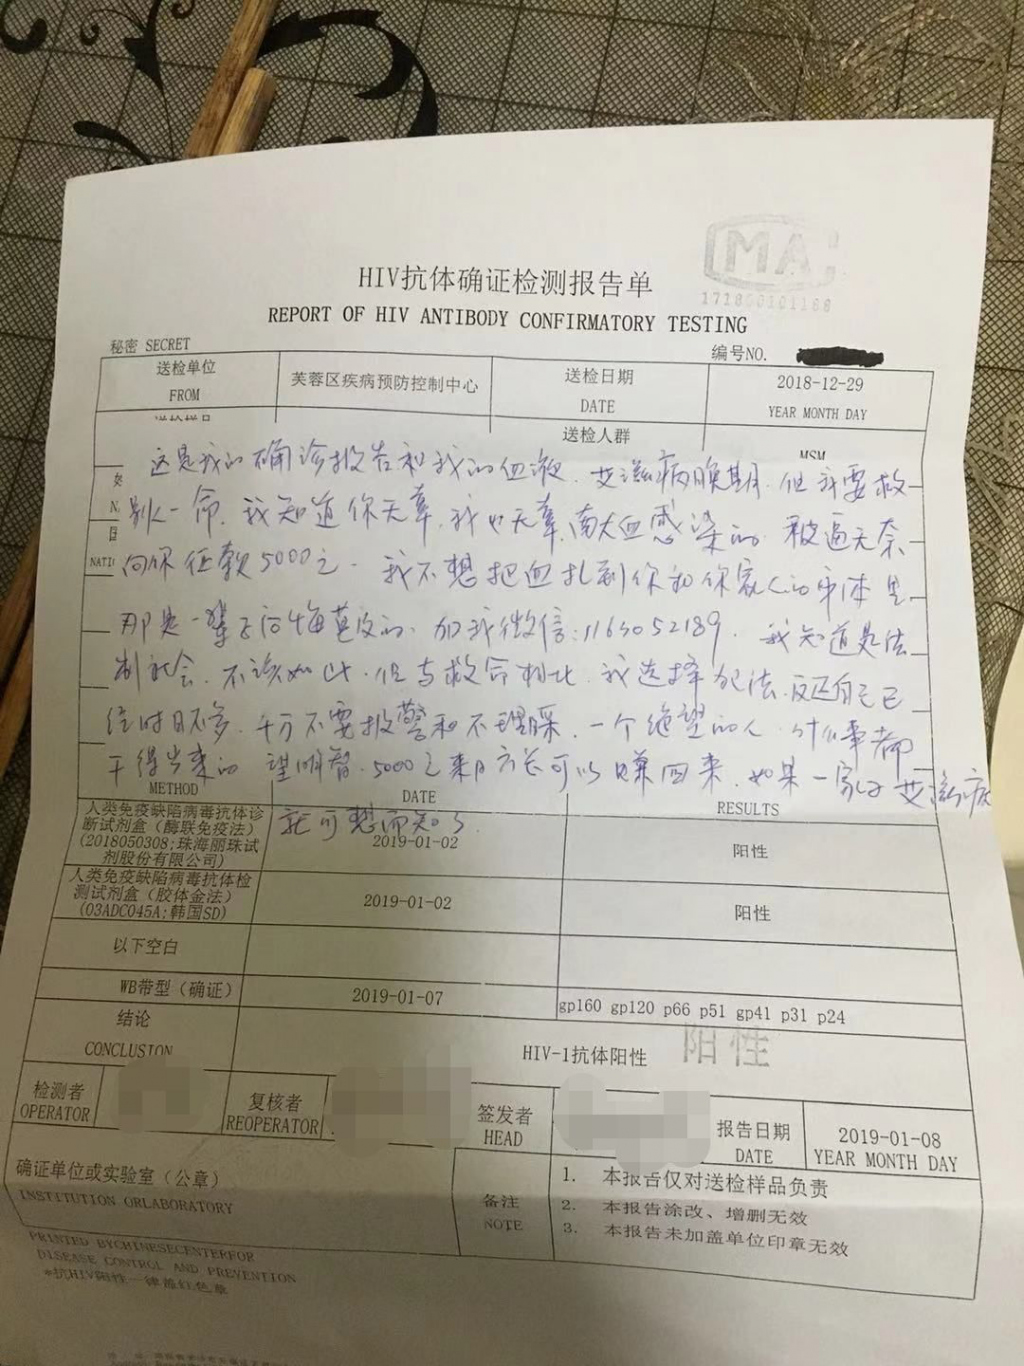 MA
171800101188
HIV抗体确证检测报告单
REPORT OF HIV ANTIBODY CONFIRMATORY TESTING
秘密 SECRET
编号NO.
送检单位
FROM
芙蓉区疾病预防控制中心
送检日期
DATE
2018-12-29
YEAR MONTH DAY
送检人群
MSM
这是我的确诊报告和我的血液. 艾滋病晚期. 但我要救
别人一命. 我知道你无辜. 我也无辜. 卖血感染的. 被逼无奈
向你征款5000元. 我不想把血扎到你和你家人的身体里
那是一辈子后悔莫及的. 加我微信:1163052189. 我知道是法
制社会. 不该如此. 但与救命相比. 我选择犯法. 反正自己已
经时日不多. 千万不要报警和不理睬. 一个绝望的人. 什么事都
干得出来的 望明智. 5000元来日方长可以赚回来. 如果一家子艾滋病
就可想而知了.
METHOD
DATE
RESULTS
人类免疫缺陷病毒抗体诊
断试剂盒（酶联免疫法）
(2018050308;珠海丽珠试
剂股份有限公司)
2019-01-02
阳性
人类免疫缺陷病毒抗体检
测试剂盒（胶体金法）
(03ADC045A;韩国SD)
2019-01-02
阳性
以下空白
WB带型（确证）
2019-01-07
gp160 gp120 p66 p51 gp41 p31 p24
结论
CONCLUSION
HIV-1抗体阳性
阳性
检测者
OPERATOR
复核者
REOPERATOR
签发者
HEAD
报告日期
DATE
2019-01-08
YEAR MONTH DAY
确证单位或实验室（公章）
INSTITUTION ORLABORATORY
备注
NOTE
1. 本报告仅对送检样品负责
2. 本报告涂改、增删无效
3. 本报告未加盖单位印章无效
PRINTED BYCHINESECENTERFOR
DISEASE CONTROL AND PREVENTION
*抗HIV阳性一律盖红色章